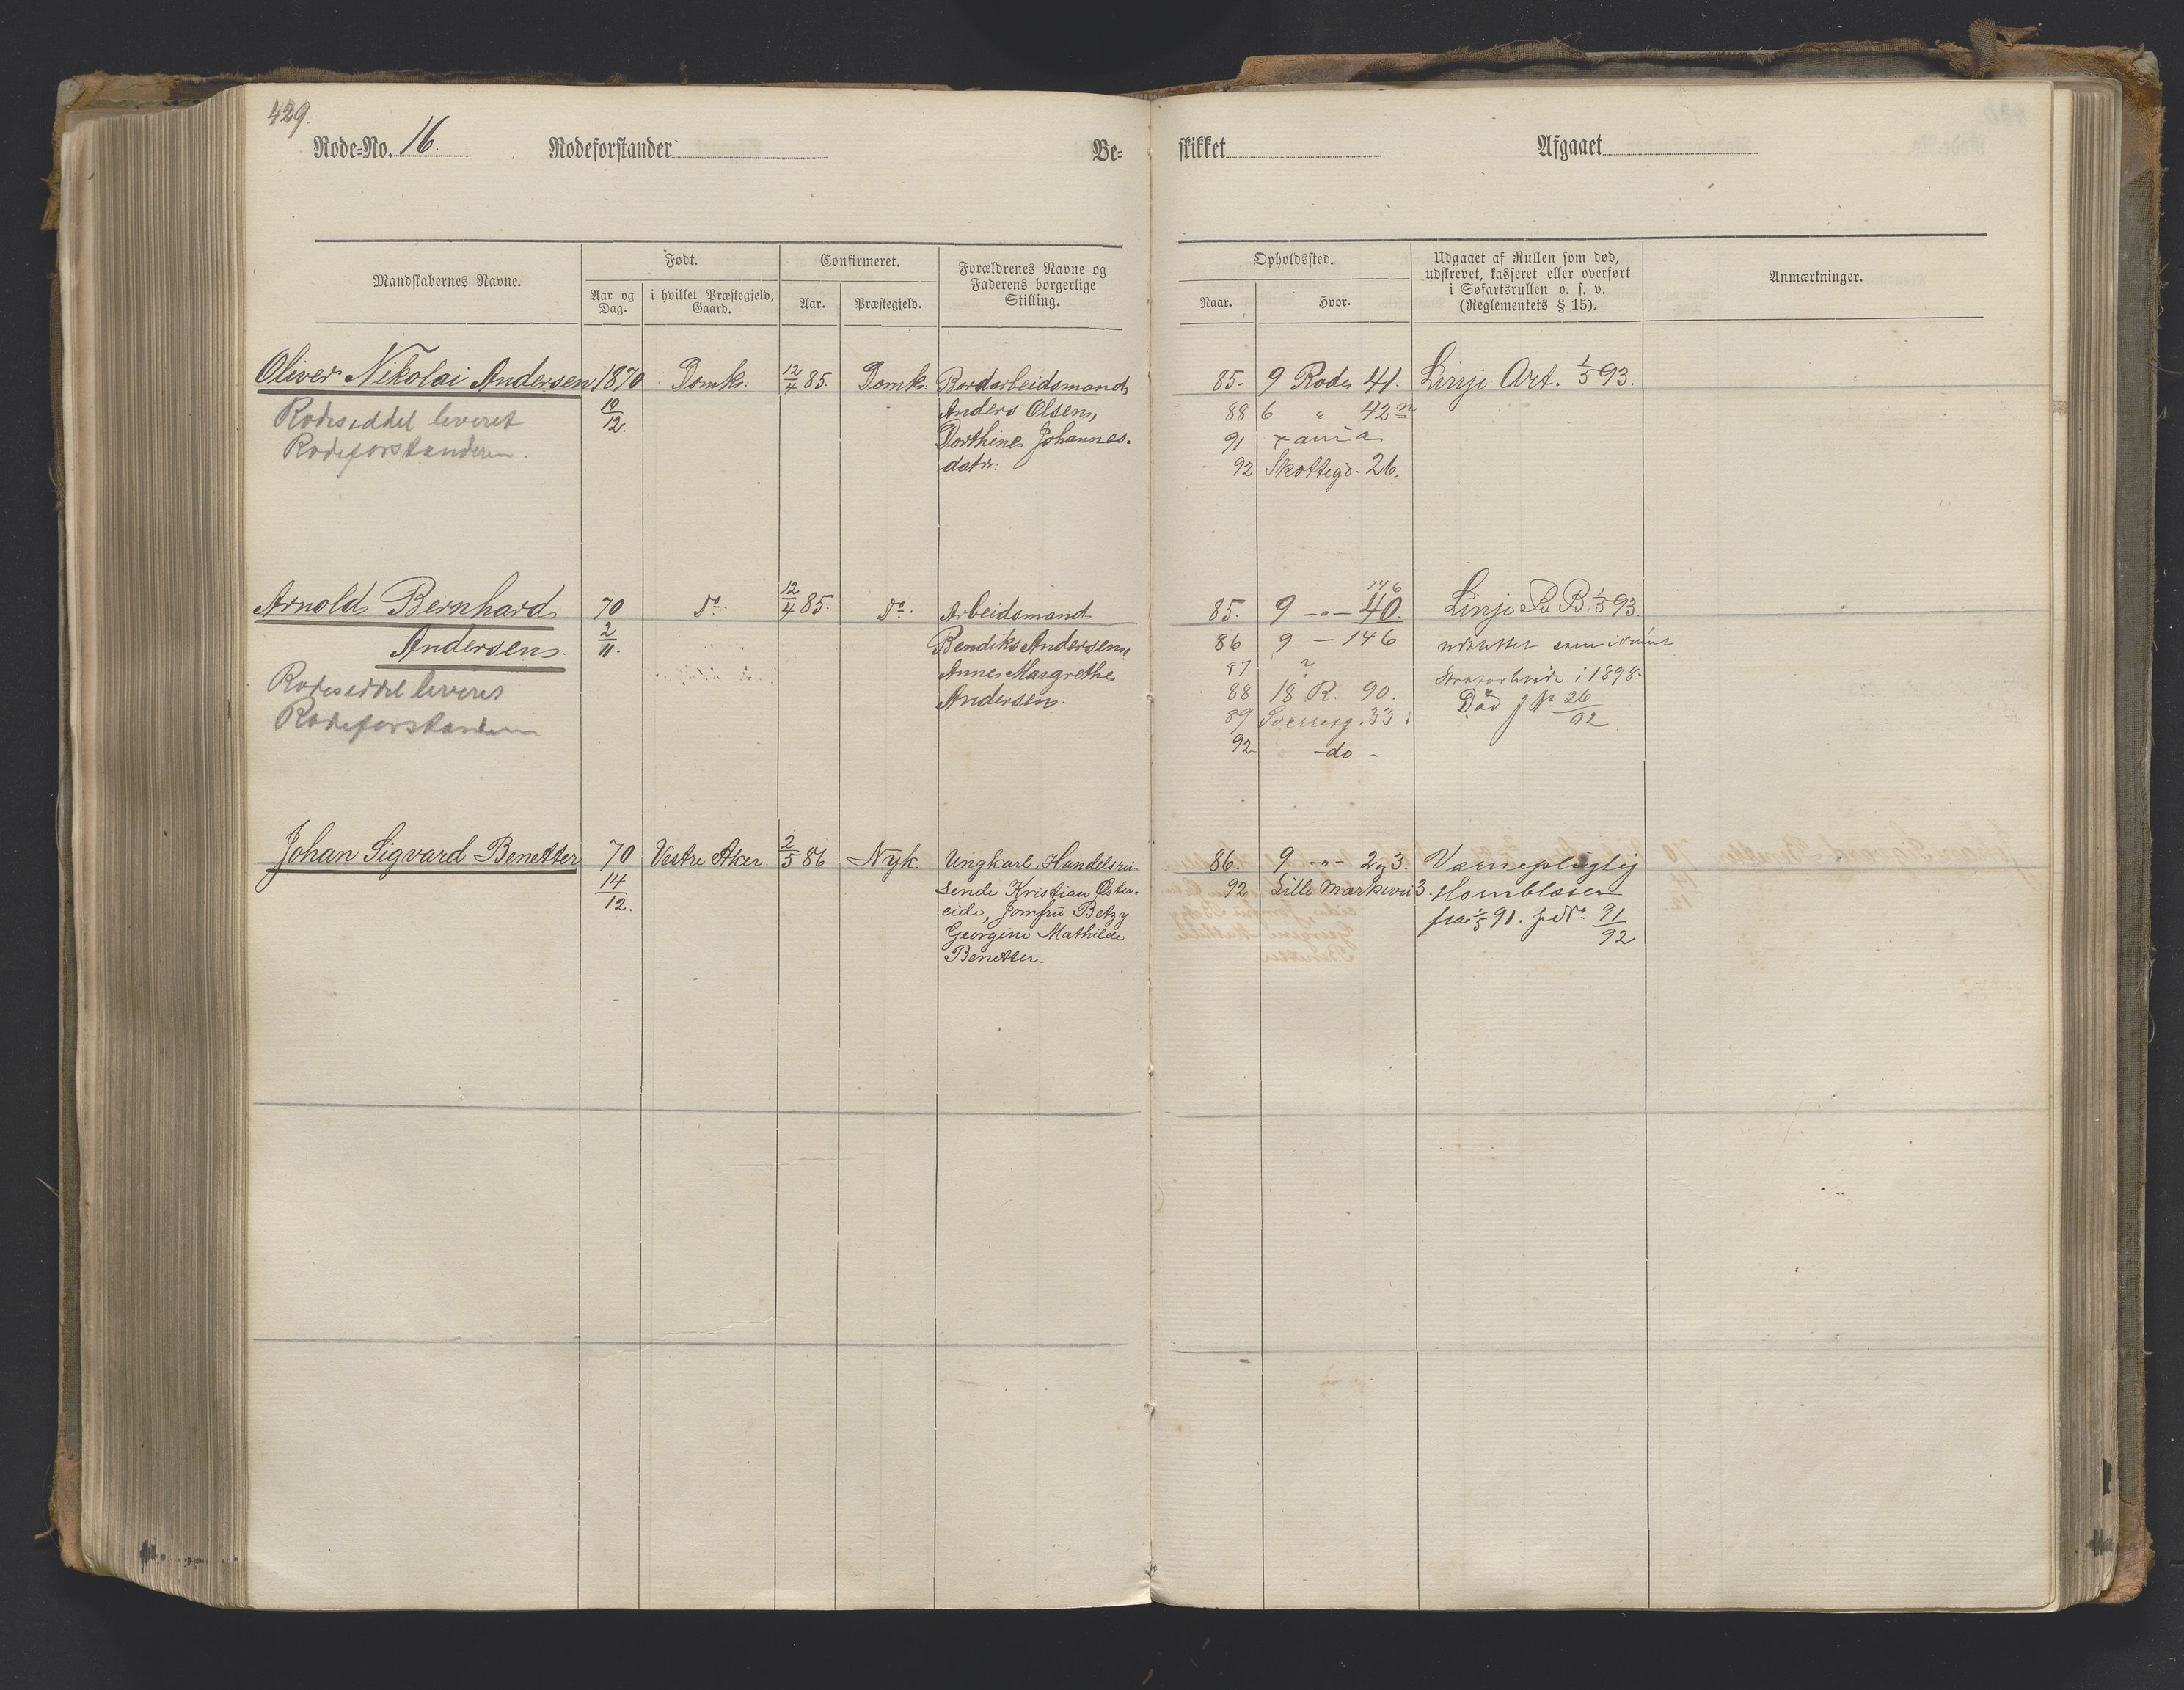 429.
Rode-No. 16. Rodeforstander Be-
skikket Afgaaet
Mandskabernes Navne.
Født.
Aar og Dag.
i hvilket Præstegjeld, Gaard.
Confirmeret.
Aar.
Præstegjeld.
Forældrenes Navne og
Faderens borgerlige
Stilling.
Opholdssted.
Naar.
Hvor.
Udgaaet af Rullen som død,
udskrevet, kasseret eller overført
i Søfartsrullen o. s. v.
(Reglementets § 15).
Anmærkninger.
Oliver Nikolai Andersen 1870 Domk. 12/4 85. Domk. Bordarbeidsmand
10/12. Anders Olsen,
Dorthine Johannes-
datr.
Rodeseddel leveret
Rodeforstanderen.
85. 9 Rode 41. Linje Art. 1/5 93.
88 6 " 42
91
92 Skottegd. 26.
Arnold Bernhard 70 Do. 12/4 85. Do. Arbeidsmand
Andersen. 2/11. Bendiks Andersen,
Anne Margrethe
Andersen.
Rodeseddel leveret
Rodeforstanderen
146
85. 9 -"- 40. Linje B B. 1/5 93.
86 9 - 146
87 ?
88 18 R. 90.
89 Sverresg. 33
92 -do-
i 1898.
Død 26/92
Johan Sigvard Benetter 70 Vestre Aker. 2/5 86 Nyk. Ungkarl, Handelsrei-
14/12. sende Kristian Øster-
eide, Jomfru Betzy
Georgine Mathilde
Benetter.
86. 9 -"- 2 og 3. Værnepligtig
92 Lille Markevei 3. Hornblæser
fra 1/5 91. 91/92